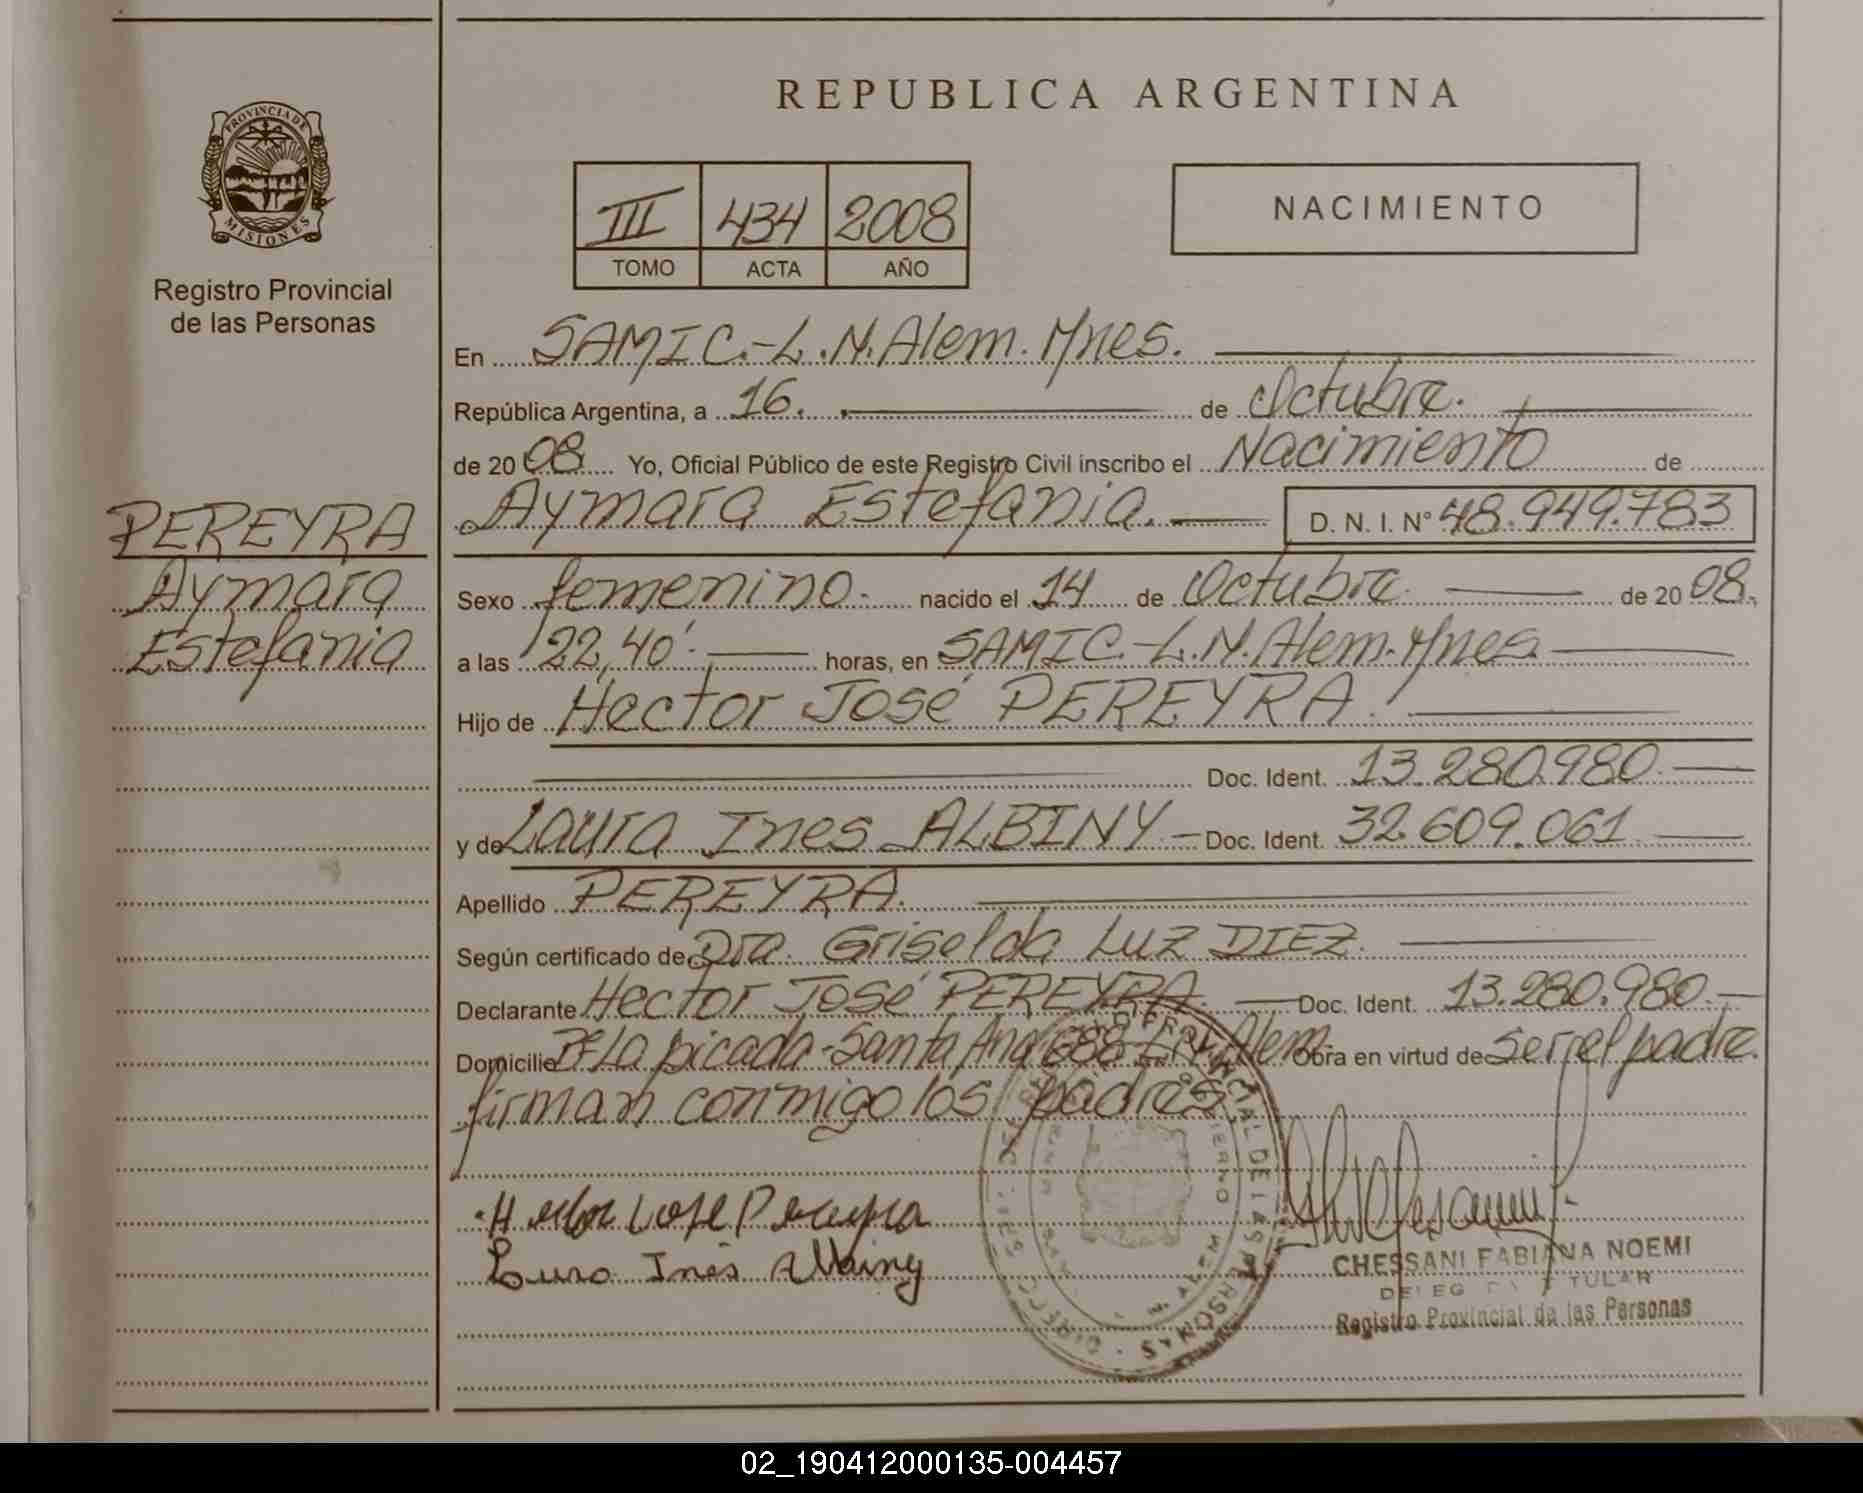 REPUBLICA ARGENTINA
PROVINCIA DE
MISIONES
Registro Provincial
de las Personas
III 434 2008
TOMO ACTA AÑO
NACIMIENTO
En SAMIC.-L.N.Alem.Mnes.
República Argentina, a 16. de Octubre.
de 2008 Yo, Oficial Público de este Registro Civil inscribo el Nacimiento de
Aymara Estefania. D. N. I. N° 48.949.783
PEREYRA
Aymara
Estefania
Sexo femenino. nacido el 14 de Octubre de 2008.
a las 22,40'. horas, en SAMIC.-L.N.Alem.Mnes.
Hijo de Hector José PEREYRA.
Doc. Ident. 13.280.980.
y de Laura Ines ALBINY Doc. Ident. 32.609.061
Apellido PEREYRA.
Según certificado de Dra. Griselda Luz DIEZ.
Declarante Hector José PEREYRA. Doc. Ident. 13.280.980.
Domicilio la picada-Santa Ana 688 L.N.Alem. Obra en virtud de ser el padre.
firman conmigo los padres
Pereyra
Inés Albiny
CHESSANI FABIANA NOEMI
DELEGADA TITULAR
Registro Provincial de las Personas
02_190412000135-004457